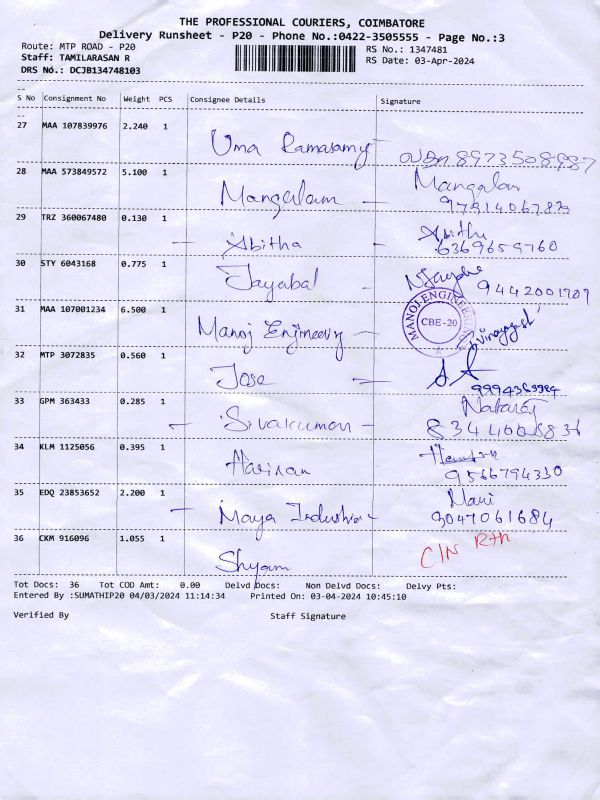 THE PROFESSIONAL COURIERS, COIMBATORE
Delivery Runsheet - P20 - Phone No.:0422-3505555 - Page No.:3
Route: MTP ROAD - P20
RS No.: 1347481
Staff: TAMILARASAN R
RS Date: 03-Apr-2024
DRS No.: DCJB134748103
S No Consignment No Weight PCS Consignee Details Signature
27 MAA 107839976 2.240 1
Uma Ramasamy 8973508987
28 MAA 573849572 5.100 1
Mangalam Mangalam
29 TRZ 360067480 0.130 1
Abitha Abitha
6369659760
30 STY 6043168 0.775 1
Jayabal
9442001709
31 MAA 107001234 6.500 1
MANOJ ENGINEERING
CBE-20
Manoj Engineering
32 MTP 3072835 0.560 1
Jose
33 GPM 363433 0.285 1
Nataraj
Sivakumar
34 KLM 1125056 0.395 1
Hariharan
9566794330
35 EDQ 23853652 2.200 1
Mani
Maya Industries 9047061684
36 CKM 916096 1.055 1
C/N Rtn
Shyam
Tot Docs: 36 Tot COD Amt: 0.00 Delvd Docs: Non Delvd Docs: Delvy Pts:
Entered By :SUMATHIP20 04/03/2024 11:14:34 Printed On: 03-04-2024 10:45:10
Verified By Staff Signature